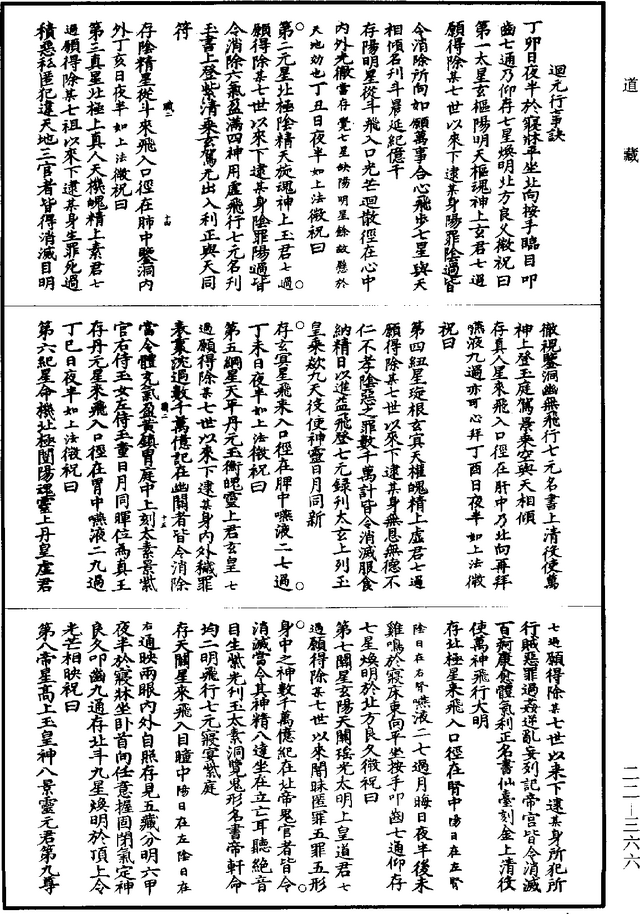 道藏
迴元行事訣
丁卯日夜半於寢牀平坐北向按手臨目叩
齒七通乃仰存七星煥明北方良久微祝曰
第一太星玄樞陽明天樞魂神上玄君七過
願得除某七世以來下逮某身陽罪陰過皆
令消除所向如願萬事合心飛步七星與天
相傾名刊斗晨延紀億千
存陽明星從斗飛入口光芒迴散徑在心中
內外光徹當存覺七星映陽明星餘故懸於
天地効也丁丑日夜半如上法微祝曰
第二元星北極陰精天旋魂神上玉君七過
願得除某七世以來下逮某身陰罪陽過皆
令消除六氣盈滿四神用盧飛行七元名刊
玉書上登紫清乘玄駕元出入利正與天同
符
存陰精星從斗來飛入口徑在肺中鑒洞內
外丁亥日夜半如上法微祝曰
第三真星北極上真人天機魄精上素君七
過願得除某七祖以來下逮某身生罪死過
積惡私匿犯違天地三官者皆得消滅目明
徹視鑒洞幽無飛行七元名書上清役使萬
神上登玉庭駕景乘空與天相傾
存真人星來飛入口徑在肝中乃北向再拜
嚥液九過亦可心拜丁酉日夜半如上法微
祝曰
第四紐星璇根玄冥天權魄精上虛君七過
願得除某七世以來下逮某身無恩無德不
仁不孝陰惡之罪數千萬計皆令消滅服食
納精日以進益飛登七元錄刊太玄上列玉
皇乘歘九天役使神靈日月同新
存玄冥星飛來入口徑在脾中嚥液二七過
丁未日夜半如上法微祝曰
第五綱星天平丹元玉衡魄靈上君玄皇七
過願得除某七世以來下逮某身內外穢罪
表裏沈過數千萬億記在幽關者皆令消除
當令體充氣盈黃鎮胃庭中上刻太素景紫
官右侍玉女左侍玉童日月同暉位為真王
存丹元星來飛入口徑在胃中嚥液二九過
丁巳日夜半如上法微祝曰
第六紀星命機北極闓陽魂靈上丹皇虛君
七過願得除某七世以來下逮某身所犯所
行賊惡罪過姦逆亂妄列記帝宮皆令消滅
百痾康愈體氣利正名書仙臺刻金上清役
使萬神飛行大明
存北極星來飛入口徑在腎中陽日在左腎
陰日在右腎嚥液二七過月晦日夜半後未
雞鳴於寢床東向平坐按手叩齒七通仰存
七星煥明於北方良久微祝曰
第七關星玄陽天關瑤光太明上皇道君七
過願得除某七世以來闇昧匿罪五罪五形
身中之神數千萬億紀在北帝鬼官者皆令
消滅當令其神精八達坐在立亡耳聽絕音
目生紫光刊玉太素洞覽鬼形名書帝軒命
均二明飛行七元寢宴紫庭
存天關星來飛入目瞳中陽日在左陰日在
右通映兩眼內外自照存見五藏分明六甲
夜半於寢牀坐卧首向任意握固閉氣定神
良久叩齒九通存北斗九星煥明於頂上令
光芒相映祝曰
第八帝星高上玉皇神八景靈元君第九尊
二二—三六六